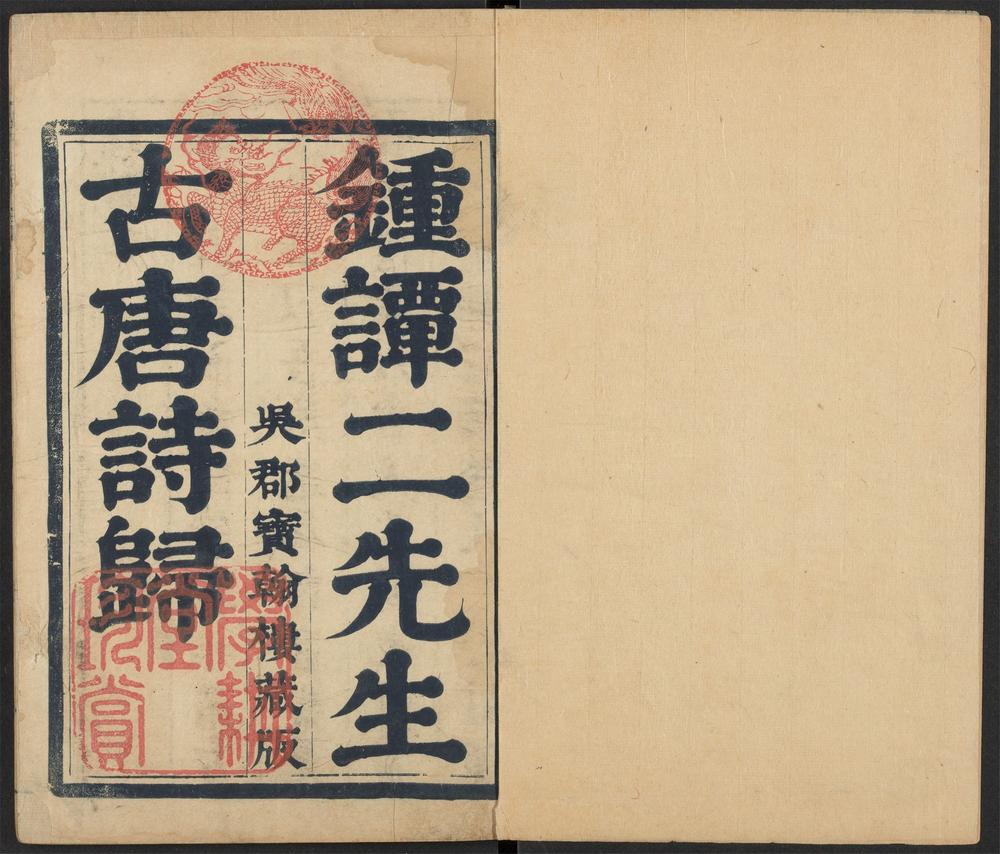 鍾譚二先生
吳郡寶翰樓藏版
古唐詩歸